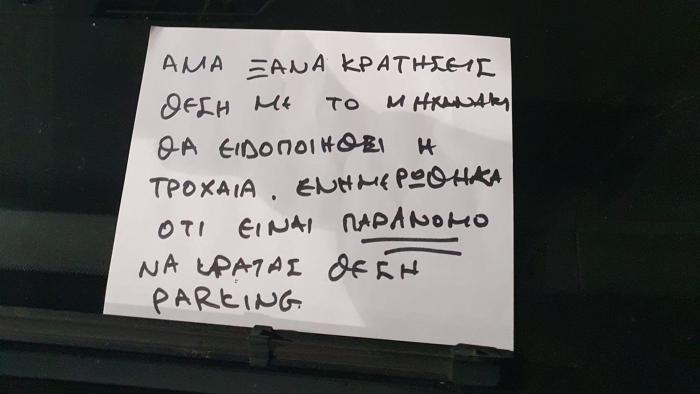 ΑΜΑ ΞΑΝΑ ΚΡΑΤΗΣΕΙΣ
ΘΕΣΗ ΜΕ ΤΟ ΜΗΧΑΝΑΚΙ
ΘΑ ΕΙΔΟΠΟΙΗΘΕΙ Η
ΤΡΟΧΑΙΑ. ΕΝΗΜΕΡΩΘΗΚΑ
ΟΤΙ ΕΙΝΑΙ ΠΑΡΑΝΟΜΟ
ΝΑ ΚΡΑΤΑΣ ΘΕΣΗ
PARKING.